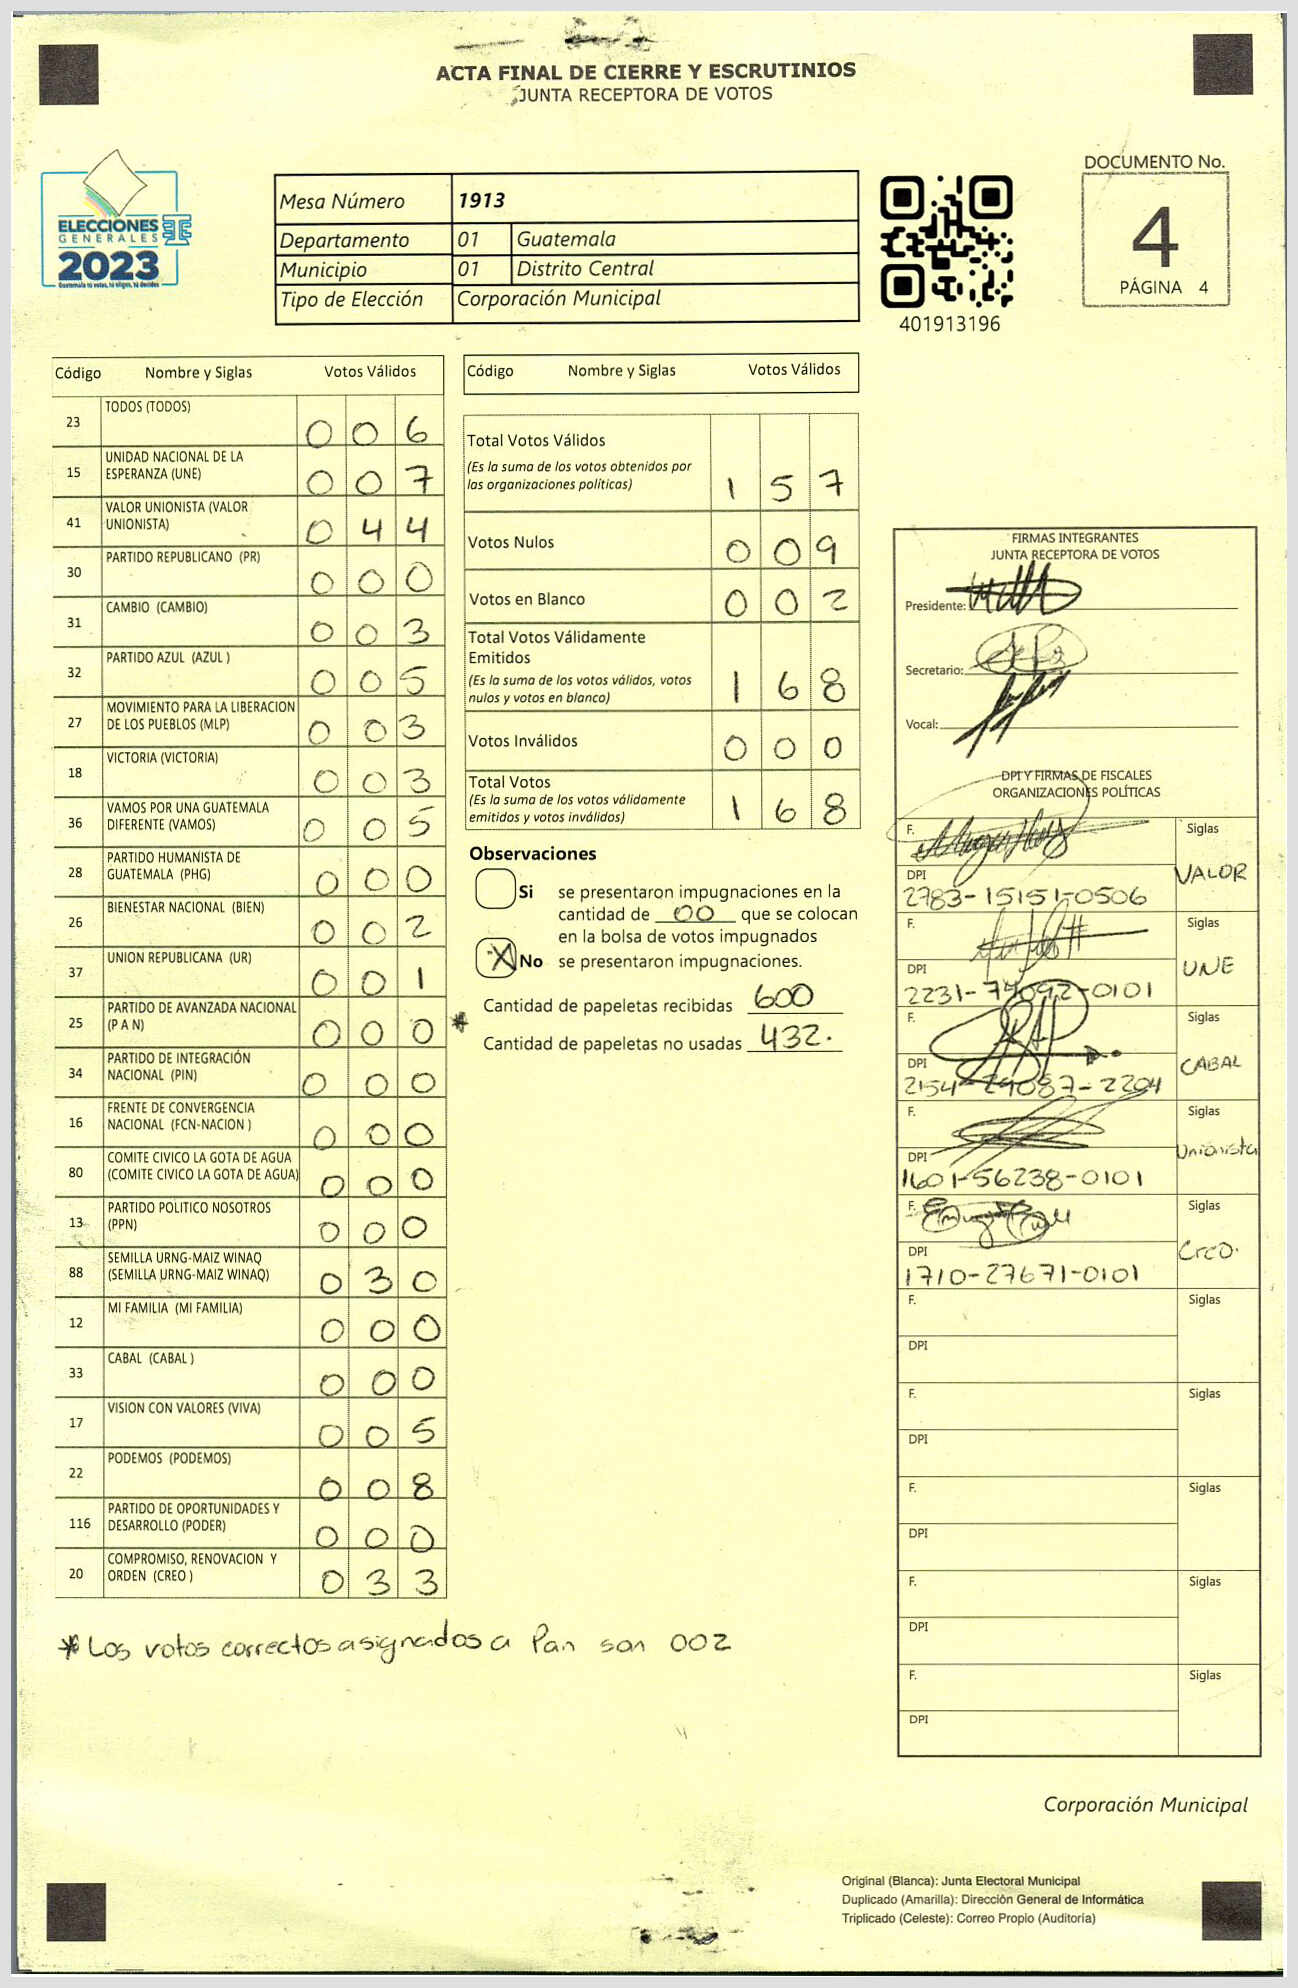 ACTA FINAL DE CIERRE Y ESCRUTINIOS
JUNTA RECEPTORA DE VOTOS
ELECCIONES
GENERALES
2023
Guatemala tú votas, tú eliges, tú decides
Mesa Número 1913
Departamento 01 Guatemala
Municipio 01 Distrito Central
Tipo de Elección Corporación Municipal
401913196
DOCUMENTO No.
4
PÁGINA 4
Código Nombre y Siglas Votos Válidos
23 TODOS (TODOS) 0 0 6
15 UNIDAD NACIONAL DE LA
ESPERANZA (UNE) 0 0 7
41 VALOR UNIONISTA (VALOR
UNIONISTA) 0 4 4
30 PARTIDO REPUBLICANO (PR) 0 0 0
31 CAMBIO (CAMBIO) 0 0 3
32 PARTIDO AZUL (AZUL ) 0 0 5
27 MOVIMIENTO PARA LA LIBERACION
DE LOS PUEBLOS (MLP) 0 0 3
18 VICTORIA (VICTORIA) 0 0 3
36 VAMOS POR UNA GUATEMALA
DIFERENTE (VAMOS) 0 0 5
28 PARTIDO HUMANISTA DE
GUATEMALA (PHG) 0 0 0
26 BIENESTAR NACIONAL (BIEN) 0 0 2
37 UNION REPUBLICANA (UR) 0 0 1
25 PARTIDO DE AVANZADA NACIONAL
(P A N) 0 0 0 *
34 PARTIDO DE INTEGRACIÓN
NACIONAL (PIN) 0 0 0
16 FRENTE DE CONVERGENCIA
NACIONAL (FCN-NACION ) 0 0 0
80 COMITE CIVICO LA GOTA DE AGUA
(COMITE CIVICO LA GOTA DE AGUA) 0 0 0
13 PARTIDO POLITICO NOSOTROS
(PPN) 0 0 0
88 SEMILLA URNG-MAIZ WINAQ
(SEMILLA URNG-MAIZ WINAQ) 0 3 0
12 MI FAMILIA (MI FAMILIA) 0 0 0
33 CABAL (CABAL ) 0 0 0
17 VISION CON VALORES (VIVA) 0 0 5
22 PODEMOS (PODEMOS) 0 0 8
116 PARTIDO DE OPORTUNIDADES Y
DESARROLLO (PODER) 0 0 0
20 COMPROMISO, RENOVACION Y
ORDEN (CREO ) 0 3 3
* Los votos correctos asignados a Pan son 002
Código Nombre y Siglas Votos Válidos
Total Votos Válidos
(Es la suma de los votos obtenidos por
las organizaciones políticas) 1 5 7
Votos Nulos 0 0 9
Votos en Blanco 0 0 2
Total Votos Válidamente
Emitidos
(Es la suma de los votos válidos, votos
nulos y votos en blanco) 1 6 8
Votos Inválidos 0 0 0
Total Votos
(Es la suma de los votos válidamente
emitidos y votos inválidos) 1 6 8
Observaciones
Si se presentaron impugnaciones en la
cantidad de 00 que se colocan
en la bolsa de votos impugnados
X No se presentaron impugnaciones.
Cantidad de papeletas recibidas 600
Cantidad de papeletas no usadas 432.
FIRMAS INTEGRANTES
JUNTA RECEPTORA DE VOTOS
Presidente:
Secretario:
Vocal:
DPI Y FIRMAS DE FISCALES
ORGANIZACIONES POLÍTICAS
F. Siglas
VALOR
DPI
2783-15151-0506
F. Siglas
UNE
DPI
2231-74092-0101
F. Siglas
CABAL
DPI
2154-29087-2204
F. Siglas
Unionista
DPI
1601-56238-0101
F. Siglas
CreO.
DPI
1710-27671-0101
F. Siglas
DPI
F. Siglas
DPI
F. Siglas
DPI
F. Siglas
DPI
F. Siglas
DPI
Corporación Municipal
Original (Blanca): Junta Electoral Municipal
Duplicado (Amarilla): Dirección General de Informática
Triplicado (Celeste): Correo Propio (Auditoría)